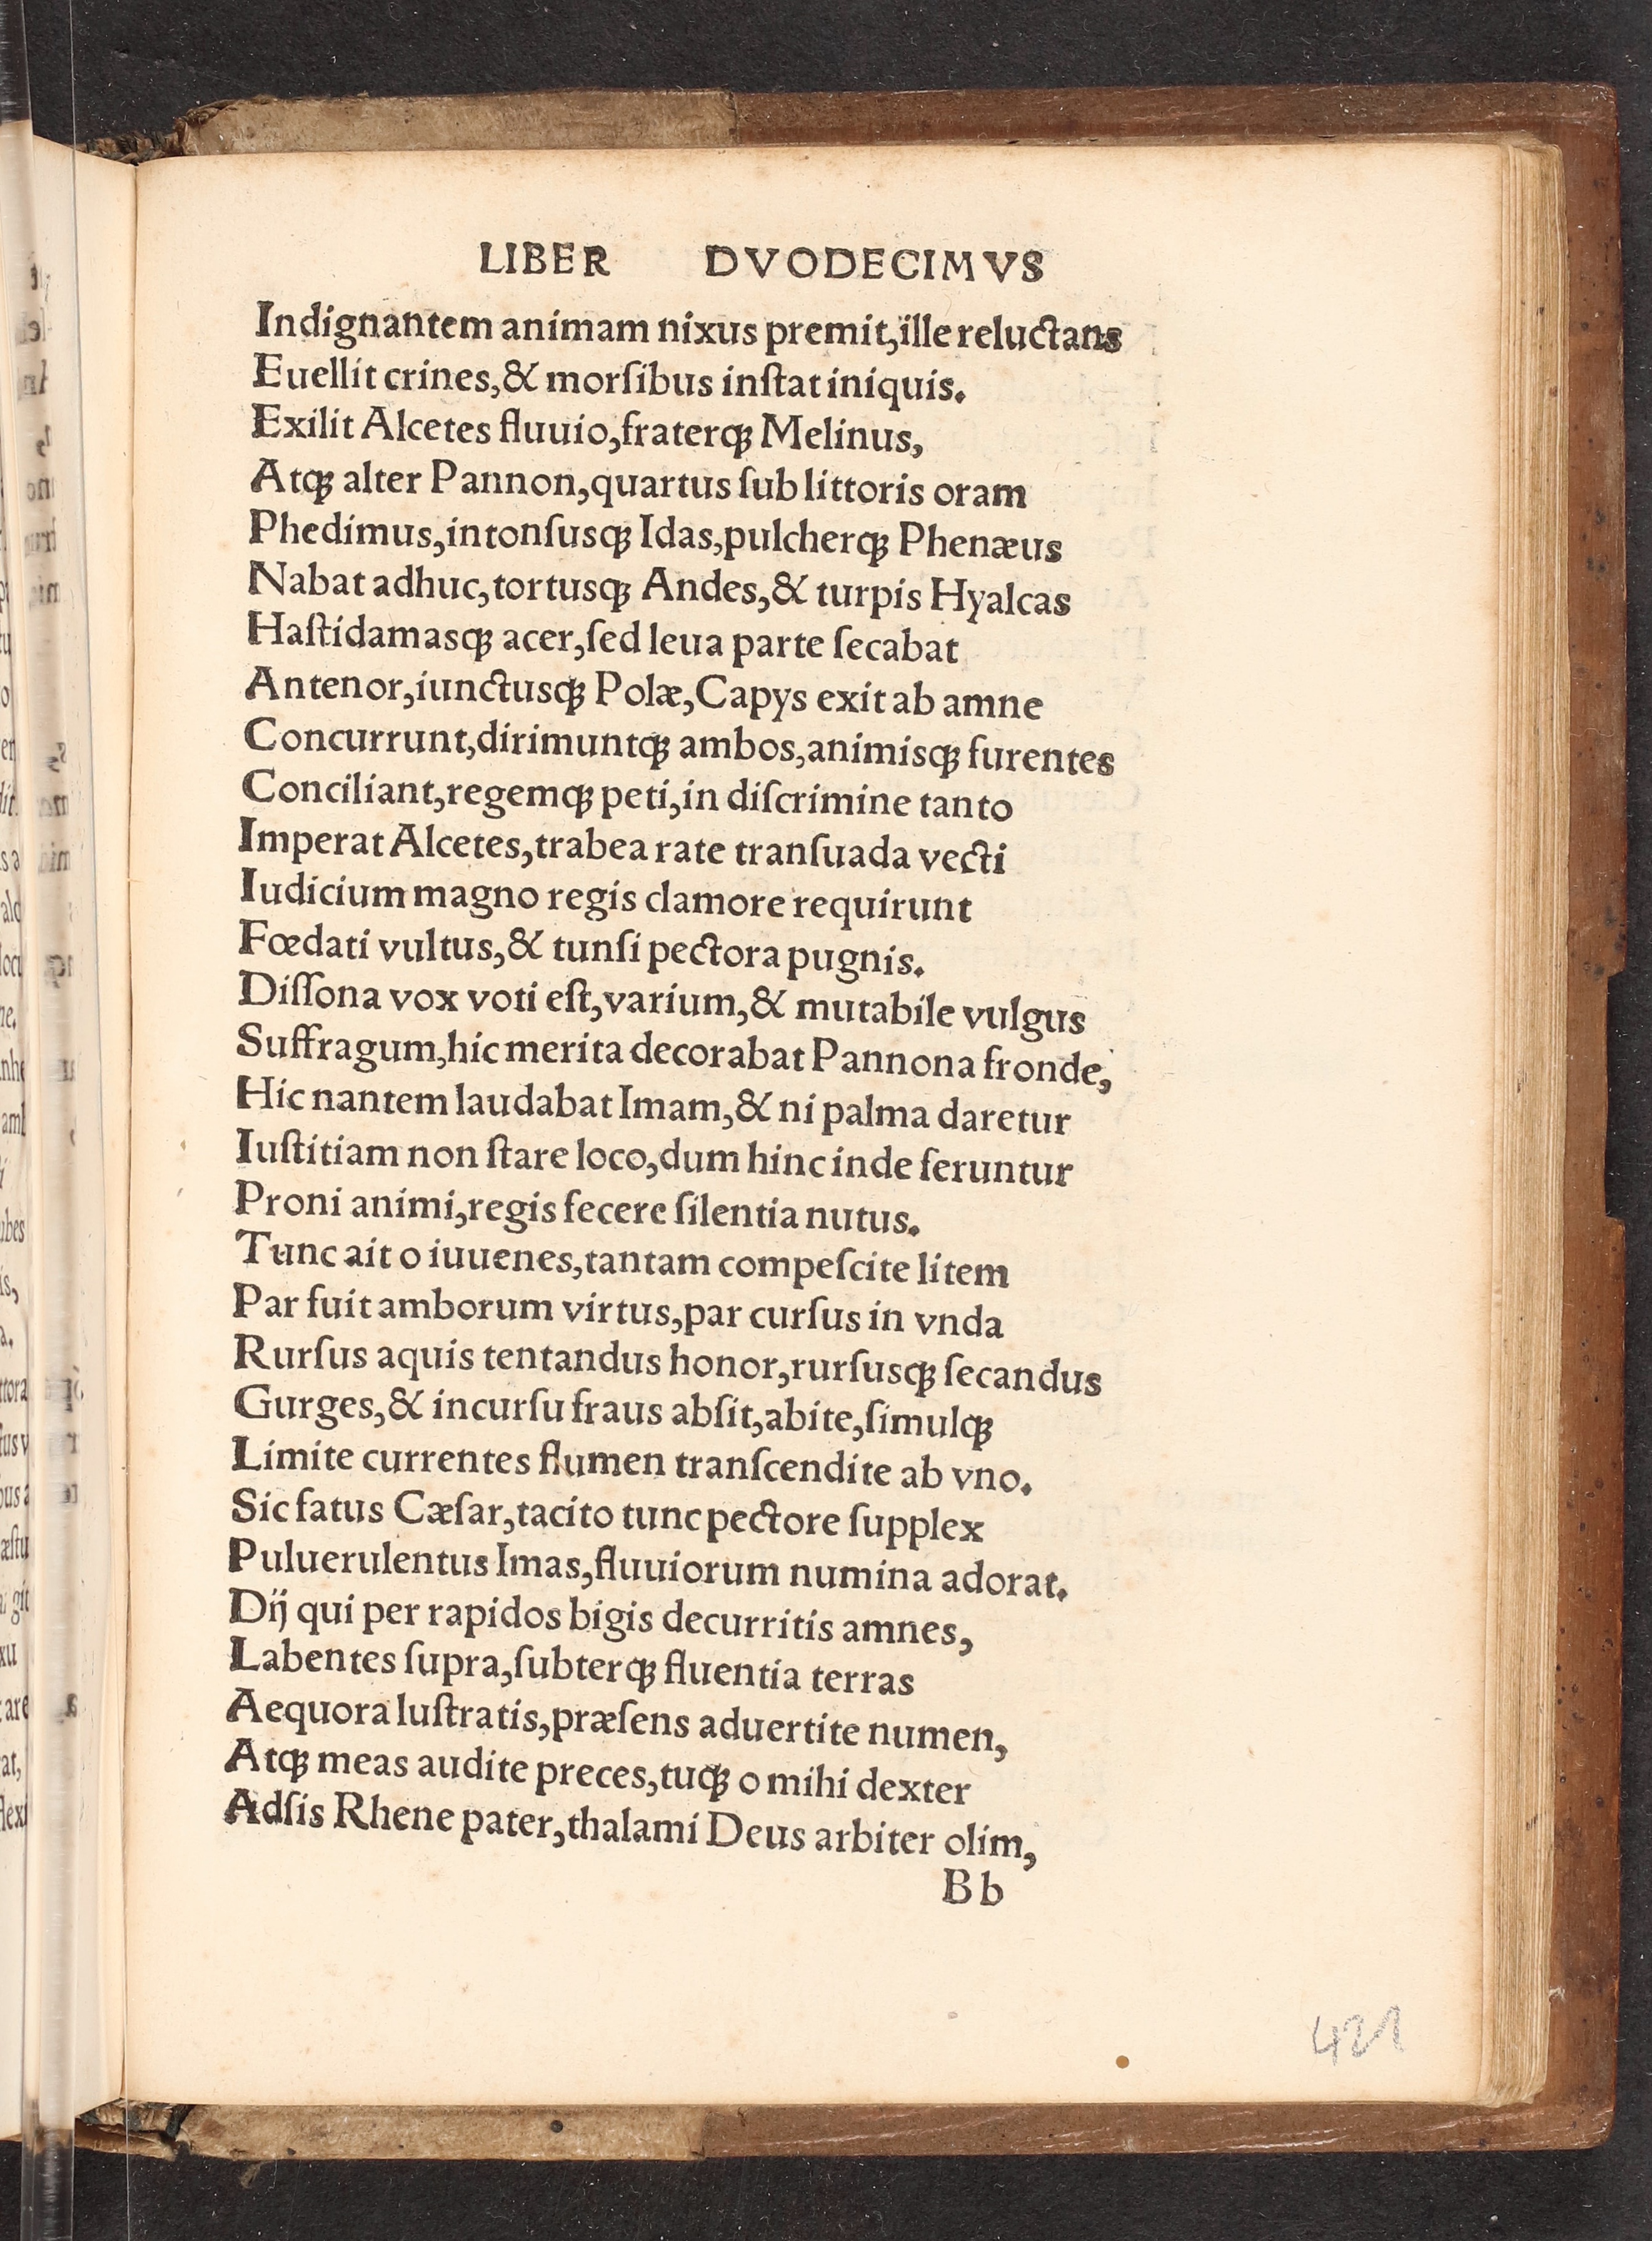 LIBER DVODECIMVS
Indignantem animam nixus premit,ille reluctans
Euellit crines,& morſibus inſtat iniquis.
Exilit Alcetes fluuio,fraterq́ꝫ Melinus,
Atqꝫ alter Pannon,quartus ſub littoris oram
Phedimus,intonſusqꝫ Idas,pulcherqꝫ Phenæus
Nabat adhuc,tortusqꝫ Andes,& turpis Hyalcas
Haſtidamasqꝫ acer,ſed leua parte ſecabat
Antenor,iunctusqꝫ Polæ,Capys exit ab amne
Concurrunt,dirimuntqꝫ ambos,animisqꝫ furentes
Conciliant,regemqꝫ peti,in diſcrimine tanto
Imperat Alcetes,trabea rate tranſuada vecti
Iudicium magno regis clamore requirunt
Fœdati vultus,& tunſi pectora pugnis.
Diſſona vox voti eſt,varium,& mutabile vulgus
Suffragum,hic merita decorabat Pannona fronde,
Hic nantem laudabat Imam,& ni palma daretur
Iuſtitiam non ſtare loco,dum hinc inde feruntur
Proni animi,regis fecere ſilentia nutus.
Tunc ait o iuuenes,tantam compeſcite litem
Par fuit amborum virtus,par curſus in vnda
Rurſus aquis tentandus honor,rurſusqꝫ ſecandus
Gurges,& incurſu fraus abſit,abite,ſimulqꝫ
Limite currentes flumen tranſcendite ab vno.
Sic fatus Cæſar,tacito tunc pectore ſupplex
Puluerulentus Imas,fluuiorum numina adorat.
Dij qui per rapidos bigis decurritis amnes,
Labentes ſupra,ſubterqꝫ fluentia terras
Aequora luſtratis,præſens aduertite numen,
Atqꝫ meas audite preces,tuqꝫ o mihi dexter
Adſis Rhene pater,thalami Deus arbiter olim,
Bb
421